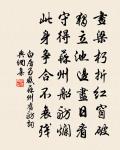 畫梁朽折紅窗破
獨立池邊盡日看
守得蘇州船舫爛
此身爭合不衰殘
白居易感蘇州舊舫